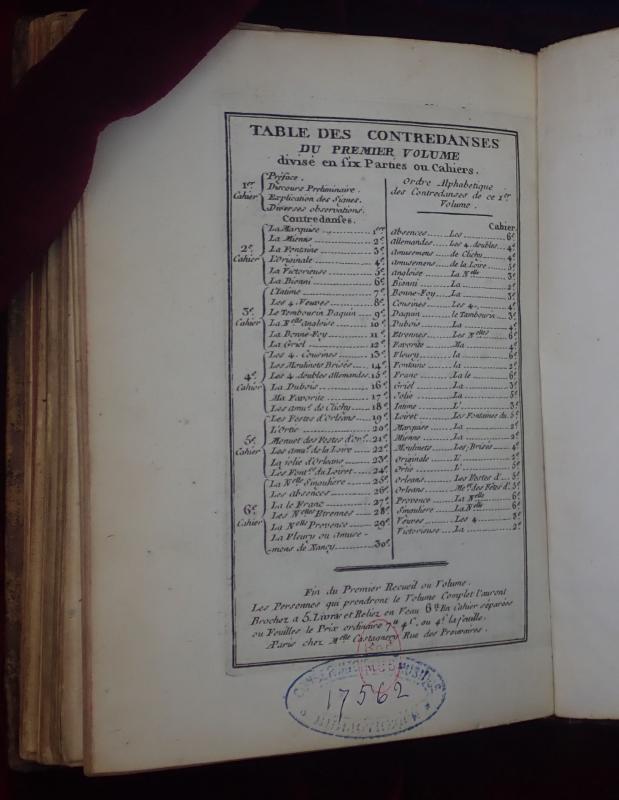 TABLE DES CONTREDANSES
DU PREMIER VOLUME
divisé en six Parties ou Cahiers.
1er Cahier
Préface.
Discours Preliminaire.
Explication des Signes.
Diverses observations.
Contredanses.
2e. Cahier
La Marquise 1er
La Mienne 2e.
La Fontaine 3e.
L'Originale 4e.
La Victorieuse 5e.
La Bionni 6e.
3e. Cahier
L'Intime 7e.
Les 4. Veuves 8e.
Le Tembourin Daquin 9e.
La Nelle angloise 10e.
La Bonne-Foy 11e.
La Griel 12e.
4e. Cahier
Les 4. Cousines 13e.
Les Moulinets Brisés 14e.
Les 4. doubles allemandes 15e.
La Dubois 16e.
Ma Favorite 17e.
Les amus. de Clichy 18e.
5e. Cahier
Les Festes d'Orléans 19e.
L'Ortie 20e.
Menuet des Festes d'Orl. 21e.
Les amus. de la Loire 22e.
La jolie d'Orleans 23e.
Les Font. du Loiret 24e.
6e. Cahier
La Nelle Singuliere 25e.
Les absences 26e.
La le Franc 27e.
Les Nelles Etrennes 28e.
La Nelle Provence 29e.
La Fleury ou Amuse-
-mens de Nancy 30e.
Ordre Alphabetique
des Contredanses de ce 1er
Volume.
Cahier.
Absences Les 6e.
Allemandes Les 4. doubles 4e.
Amusemens de Clichy 4e.
Amusemens de la Loire 5e.
Angloise La Nelle 3e.
Bionni La 2e.
Bonne-Foy La 3e.
Cousines Les 4. 4e.
Daquin le Tambourin 3e.
Dubois La 4e.
Etrennes Les Nelles 6e.
Favorite Ma 4e.
Fleury la 6e.
Fontaine la 2e.
Franc La le 6e.
Griel La 3e.
Jolie La 5e.
Intime L' 3e.
Loiret Les Fontaines du 5e.
Marquise La 2e.
Mienne La 2e.
Moulinets Les Brisés 4e.
Originale L' 2e.
Ortie L' 5e.
Orleans Les Festes d' 5e.
Orleans Me. des Fêtes d' 5e.
Provence La Nelle 6e.
Singuliere La Nelle 6e.
Veuves Les 4 3e.
Victorieuse La 2e.
Fin du Premier Recueil ou Volume.
Les Personnes qui prendront le Volume Complet l'auront
Brochez a 5. Livres et Reliez en Veau 6tt En Cahier séparées
ou Feuilles le Prix ordinaire 7tt 4s. ou 4s. la feuille.
A Paris chez Melle Castagnery Rue des Prouvaires.
17562
BIBLIOTHEQUE